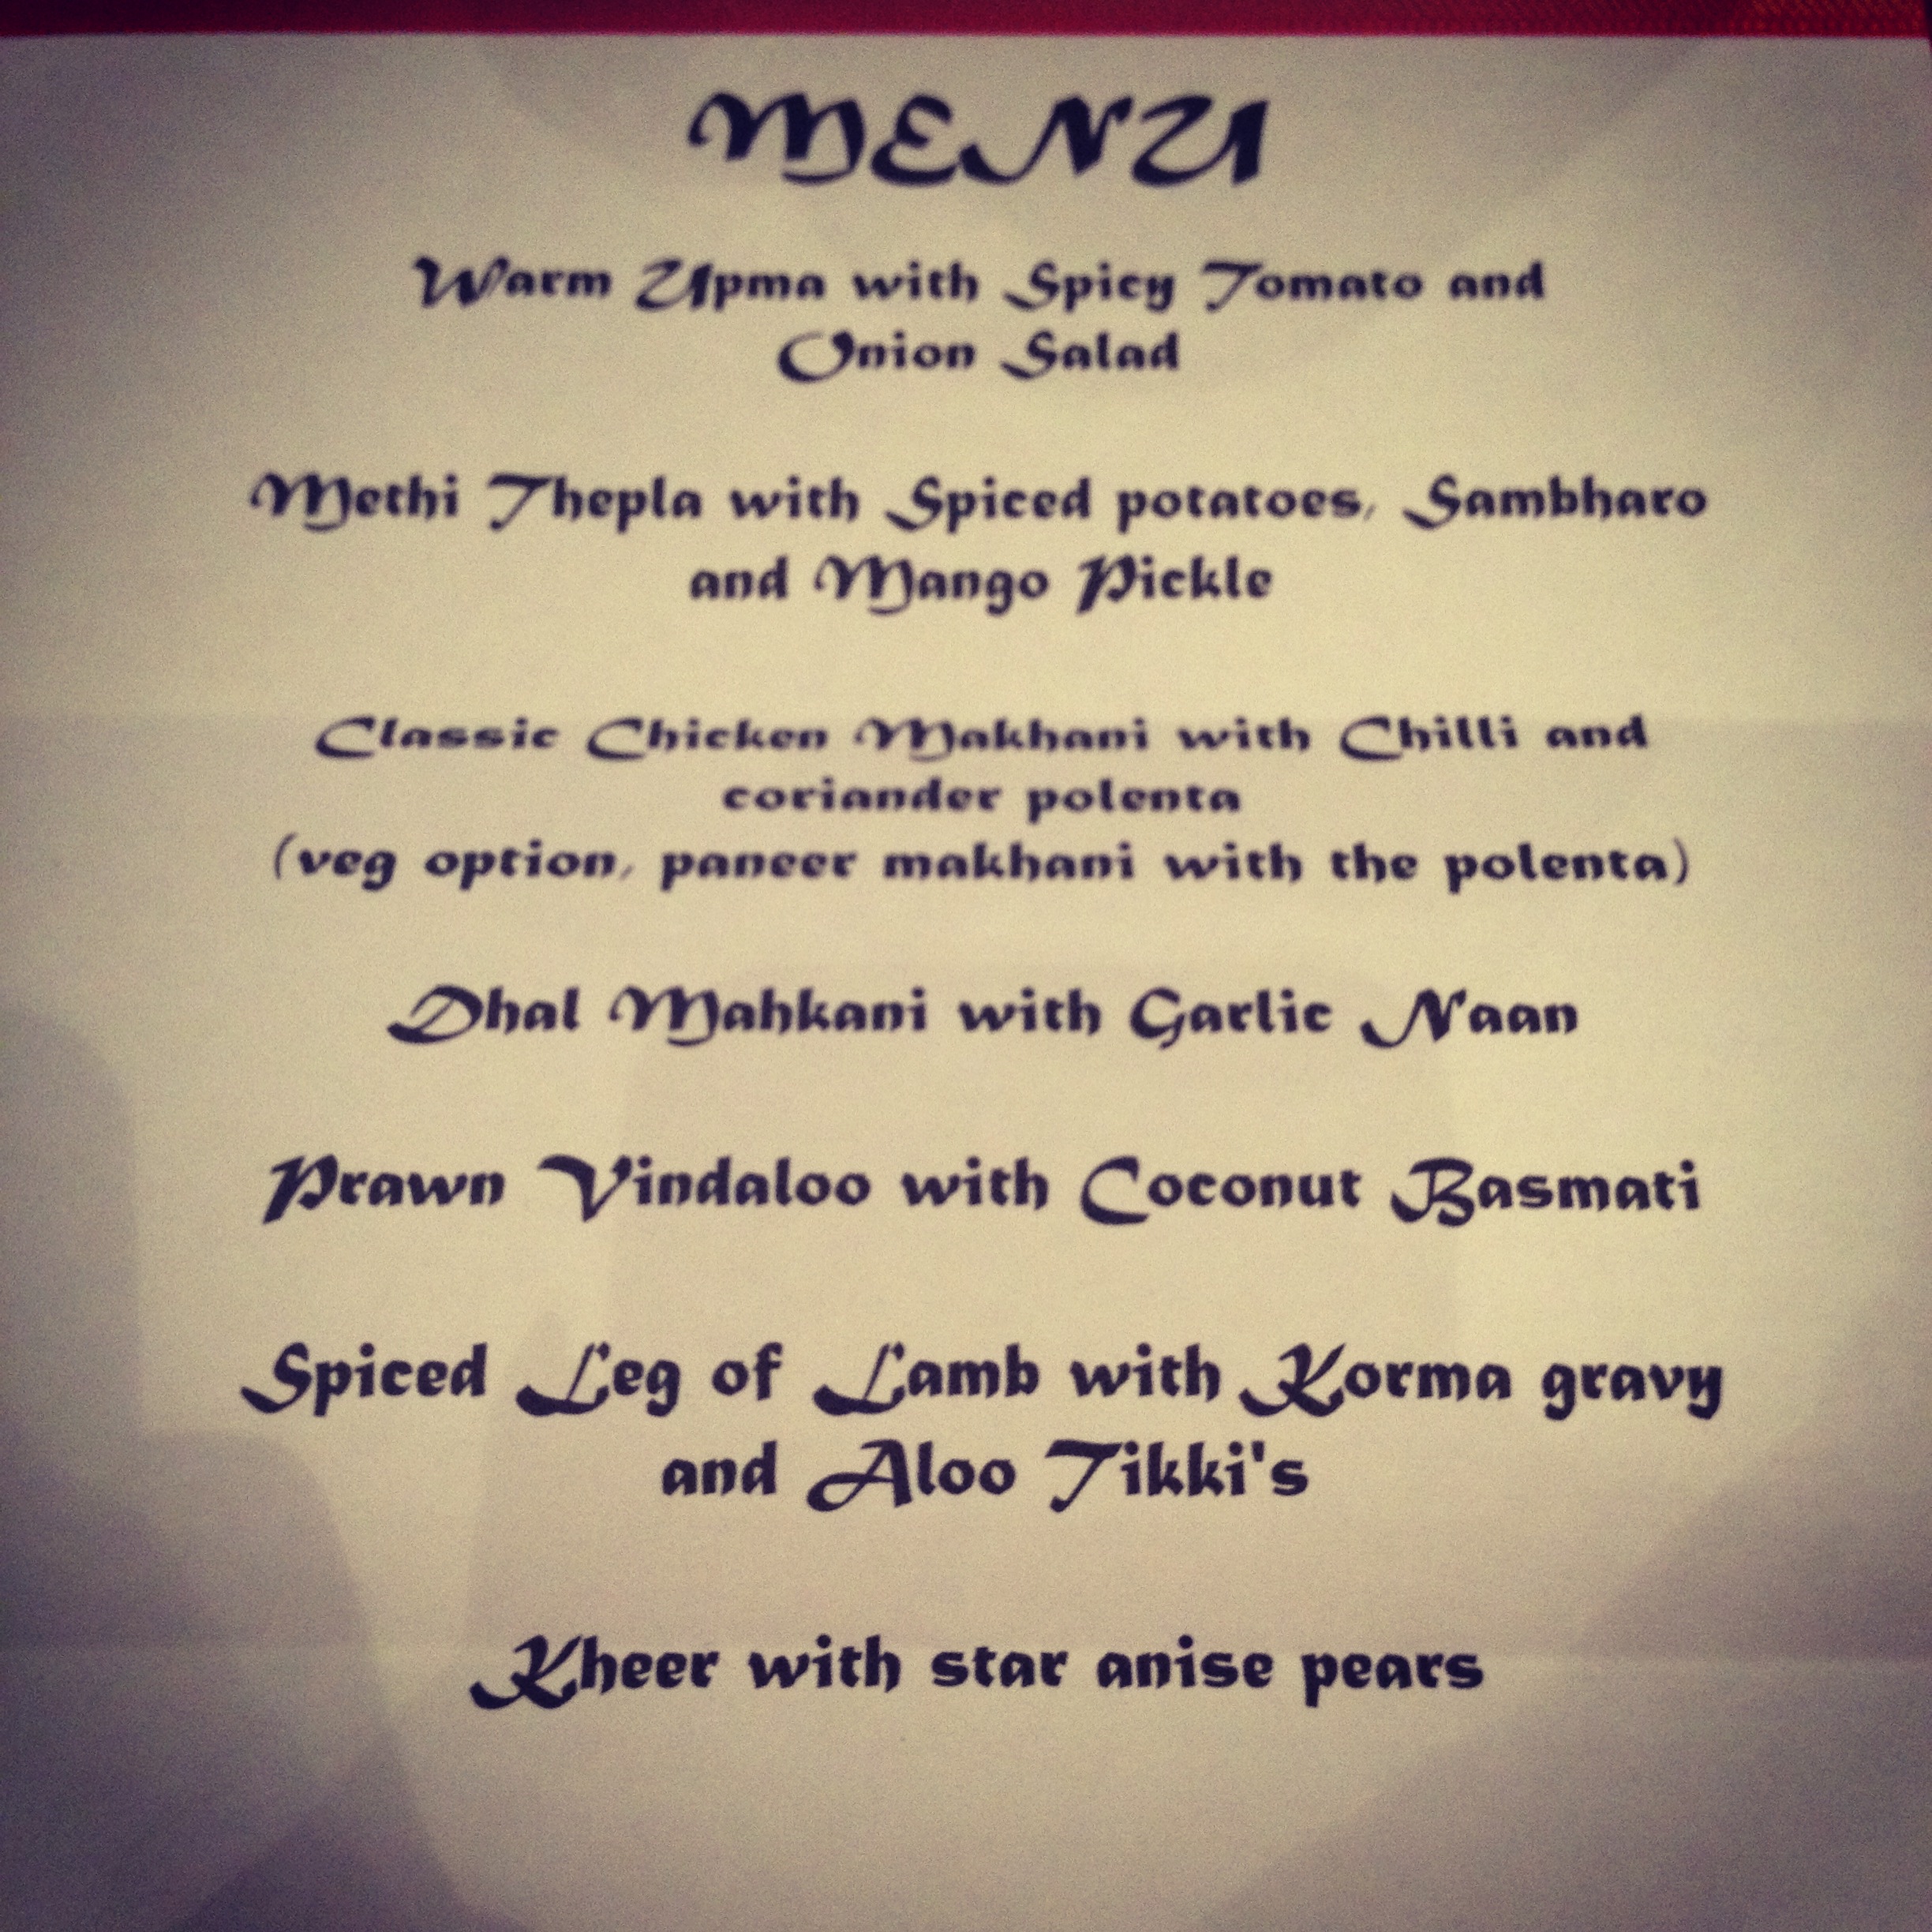 MENU
Warm Upma with Spicy Tomato and
Onion Salad
Methi Thepla with Spiced potatoes, Sambharo
and Mango Pickle
Classic Chicken Makhani with Chilli and
coriander polenta
(veg option, paneer makhani with the polenta)
Dhal Mahkani with Garlic Naan
Prawn Vindaloo with Coconut Basmati
Spiced Leg of Lamb with Korma gravy
and Aloo Tikki's
Kheer with star anise pears